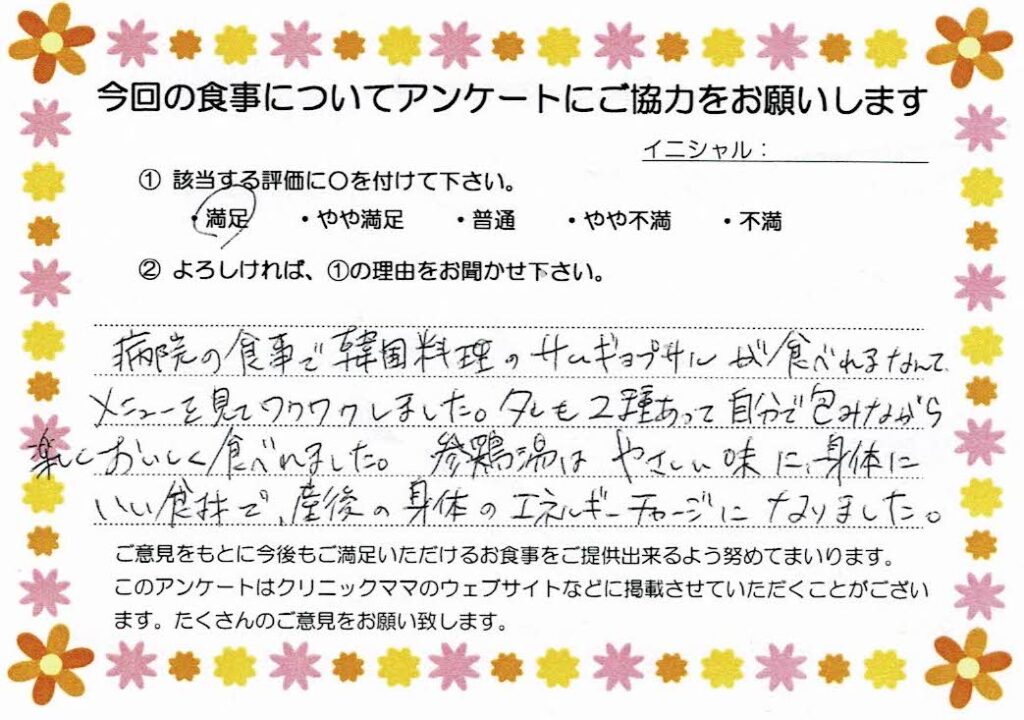 今回の食事についてアンケートにご協力をお願いします
イニシャル：
① 該当する評価に〇を付けて下さい。
・満足 ・やや満足 ・普通 ・やや不満 ・不満
② よろしければ、①の理由をお聞かせ下さい。
病院の食事で韓国料理のサムギョプサルが食べれるなんて、
メニューを見てワクワクしました。タレも2種あって自分で包みながら
楽しくおいしく食べれました。参鶏湯はやさしい味に、身体に
いい食材で、産後の身体のエネルギーチャージになりました。
ご意見をもとに今後もご満足いただけるお食事をご提供出来るよう努めてまいります。
このアンケートはクリニックママのウェブサイトなどに掲載させていただくことがござい
ます。たくさんのご意見をお願い致します。